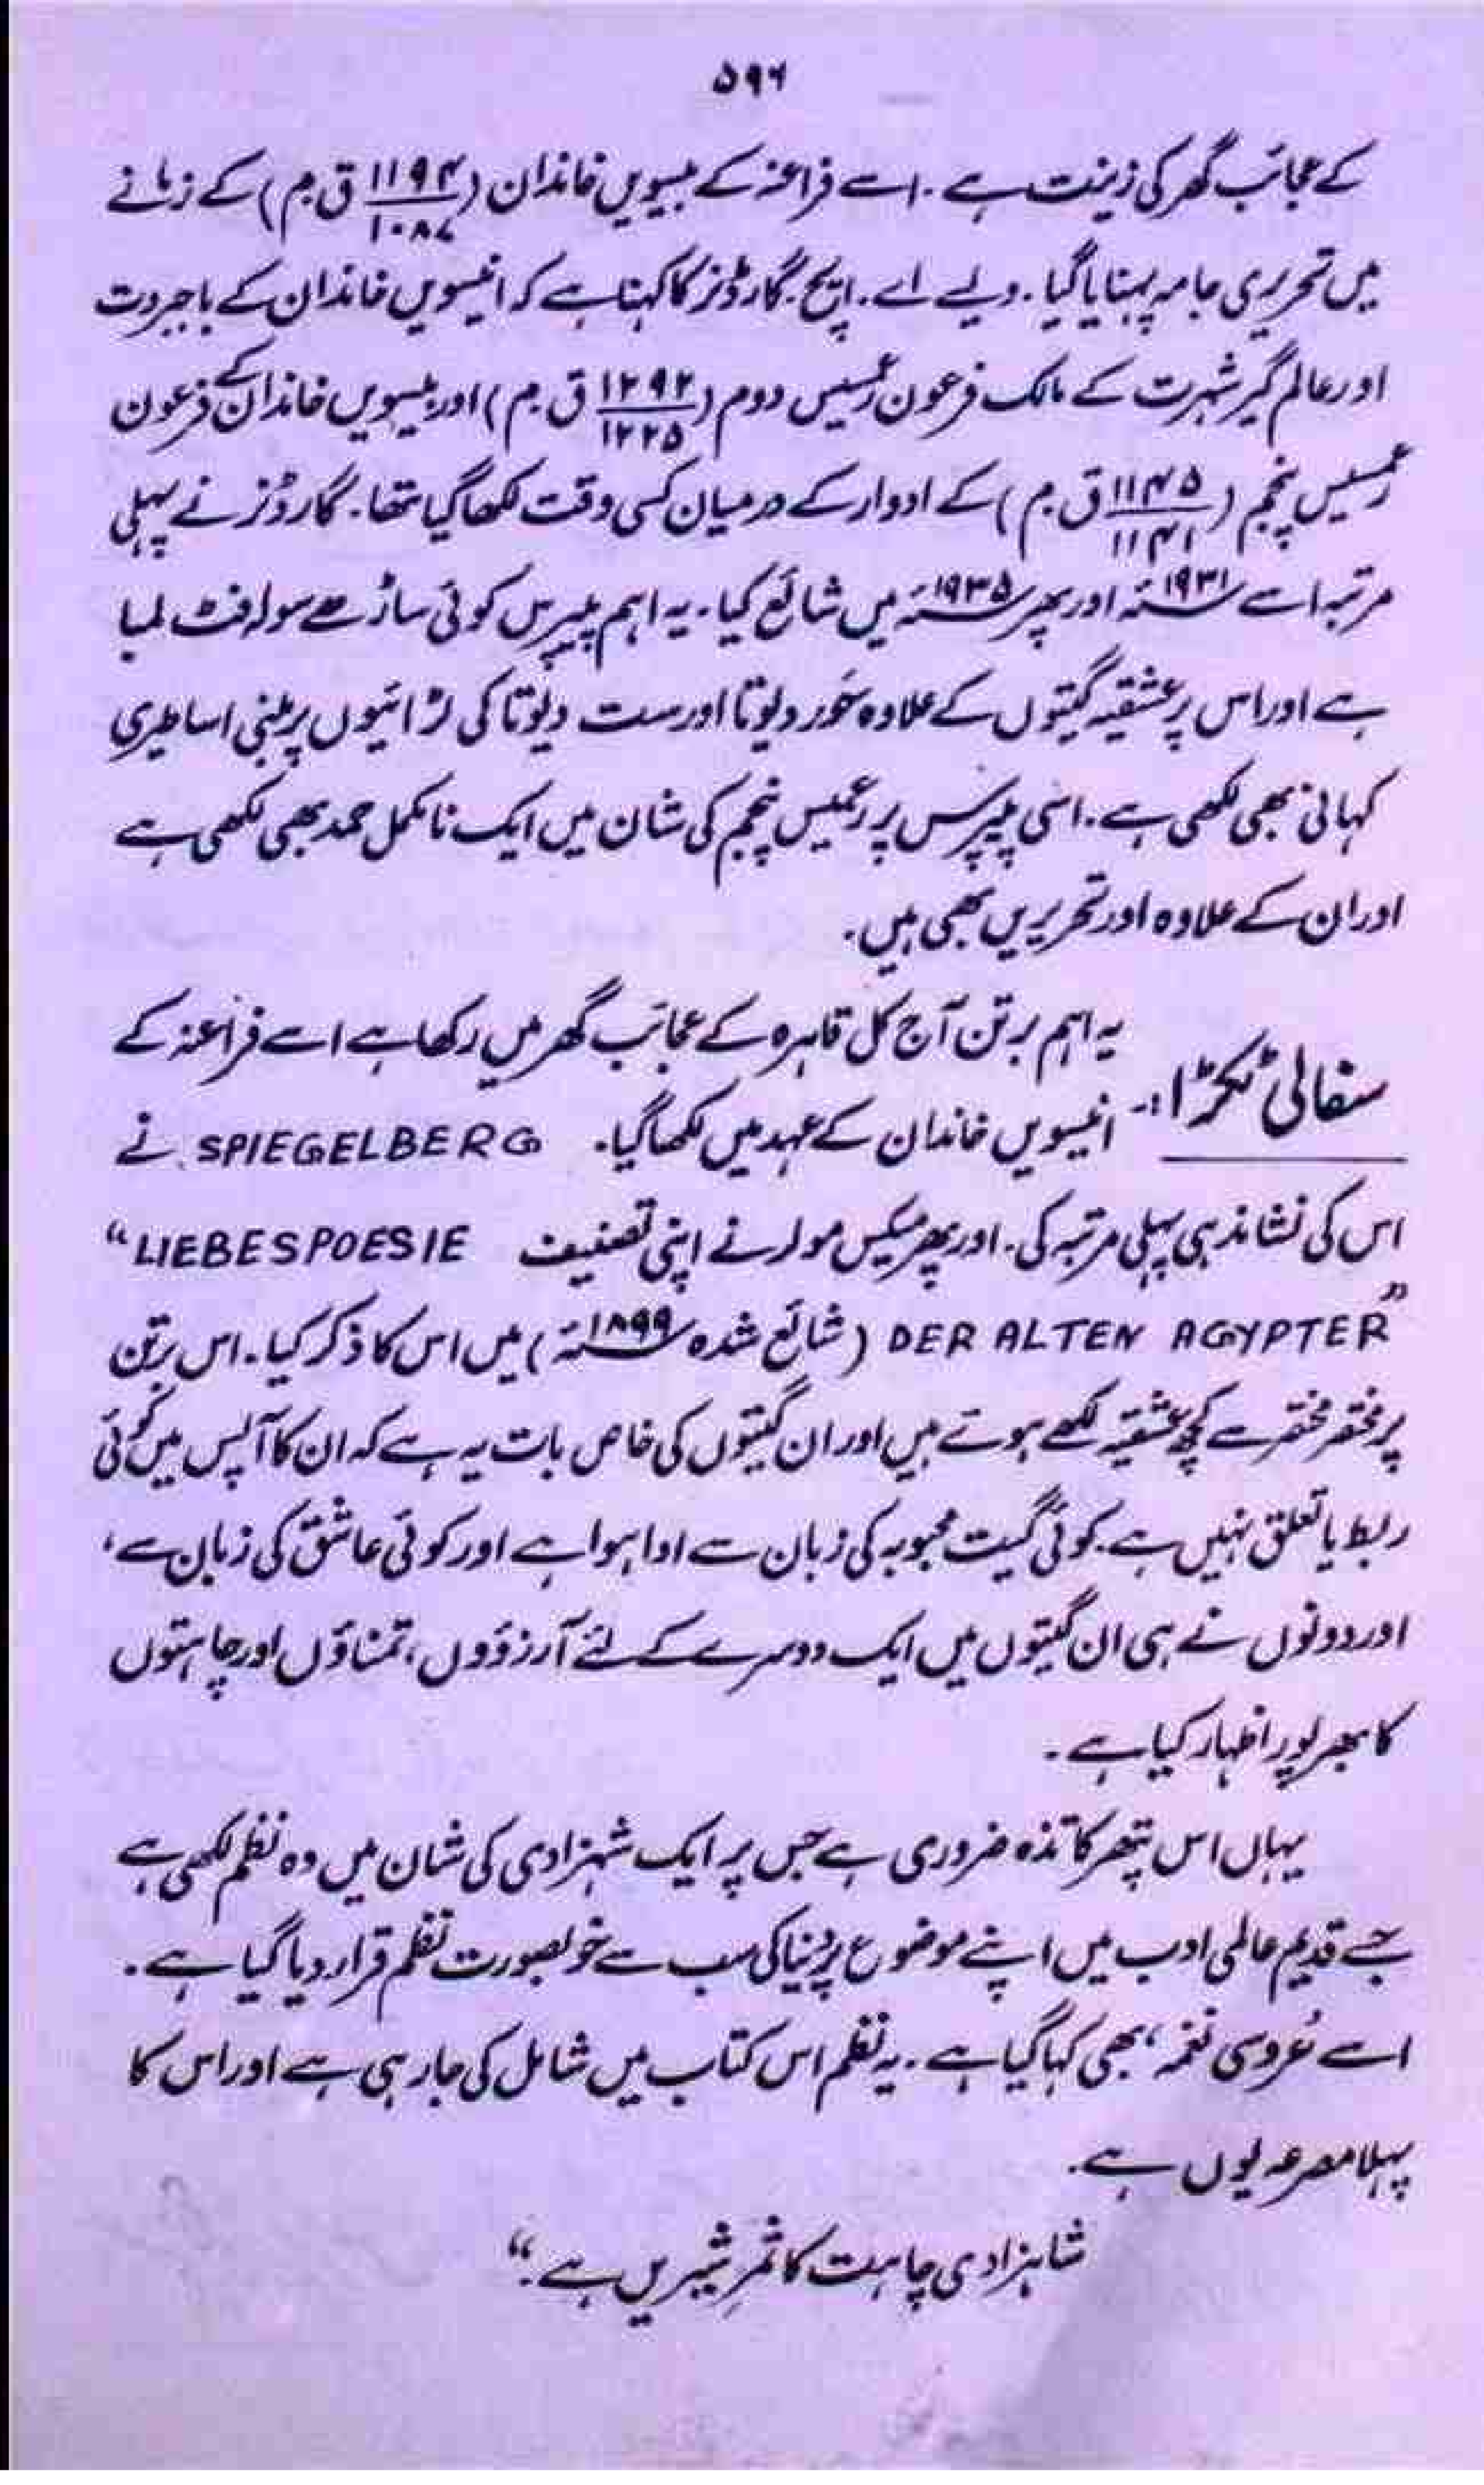 ۵۹۶
کے عجائب گھر کی زینت ہے ۔ اسے فراعنہ کے بیسویں خاندان (۱۱۹۴/۱۰۸۷ ق م) کے زمانے
میں تحریری جامہ پہنایا گیا ۔ ویسے اے ۔ ایچ ۔ گارڈنر کا کہنا ہے کہ انیسویں خاندان کے باجبروت
اور عالم گیر شہرت کے مالک فرعون رعمسیس دوم (۱۲۹۲/۱۲۲۵ ق م) اور بیسویں خاندان کے فرعون
رعمسیس پنجم (۱۱۴۵/۱۱۴۱ ق م) کے ادوار کے درمیان کسی وقت لکھا گیا تھا ۔ گارڈنر نے پہلی
مرتبہ اسے ۱۹۳۱ء اور پھر ۱۹۳۵ء میں شائع کیا ۔ یہ اہم پیپرس کوئی ساڑھے سولہ فٹ لمبا
ہے اور اس پر عشقیہ گیتوں کے علاوہ حَور دیوتا اور ست دیوتا کی لڑائیوں پر مبنی اساطیری
کہانی بھی لکھی ہے ۔ اسی پیپرس پر رعمیس پنجم کی شان میں ایک نامکمل حمد بھی لکھی ہے
اور ان کے علاوہ اور تحریریں بھی ہیں ۔
سفالی ٹکڑا :۔ یہ اہم برتن آج کل قاہرہ کے عجائب گھر میں رکھا ہے اسے فراعنہ کے
انیسویں خاندان کے عہد میں لکھا گیا ۔ SPIEGELBERG نے
اس کی نشاندہی پہلی مرتبہ کی ۔ اور پھر میکس مولر نے اپنی تصنیف "LIEBESPOESIE
DER ALTEN AGYPTER" (شائع شدہ ۱۸۹۹ء) میں اس کا ذکر کیا ۔ اس برتن
پر مختصر مختصر سے کچھ عشقیہ لکھے ہوتے ہیں اور ان گیتوں کی خاص بات یہ ہے کہ ان کا آپس میں کوئی
ربط یا تعلق نہیں ہے ۔ کوئی گیت محبوبہ کی زبان سے ادا ہوا ہے اور کوئی عاشق کی زبان سے ،
اور دونوں نے ہی ان گیتوں میں ایک دوسرے کے لئے آرزوؤں ، تمناؤں اور چاہتوں
کا بھرپور اظہار کیا ہے ۔
یہاں اس پتھر کا تذہ ضروری ہے جس پر ایک شہزادی کی شان میں وہ نظم لکھی ہے
جسے قدیم عالمی ادب میں اپنے موضوع پر دنیا کی سب سے خوبصورت نظم قرار دیا گیا ہے ۔
اسے عُروسی نغمہ ، بھی کہا گیا ہے ۔ یہ نظم اس کتاب میں شامل کی جا رہی ہے اور اس کا
پہلا مصرعہ یوں ہے ۔
شاہزادی چاہت کا ثمرِ شیریں ہے ۔"